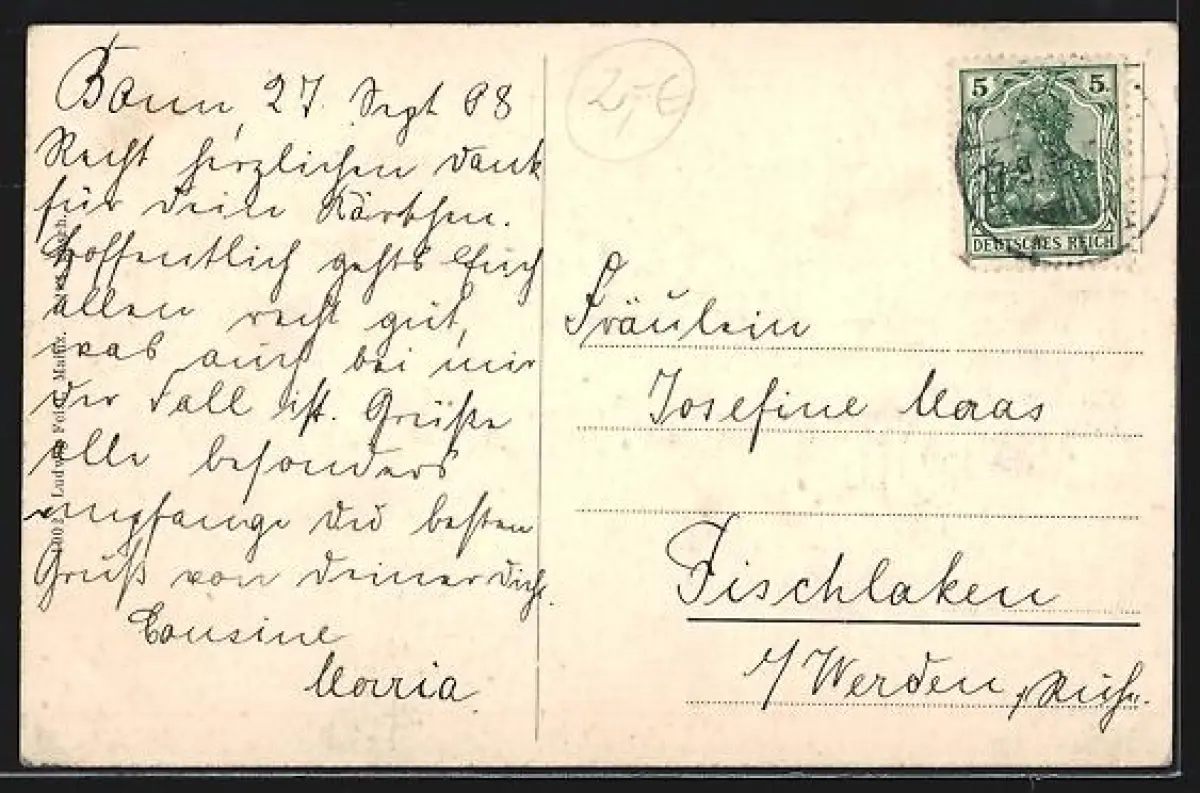 Bonn, 27. Sept 08
Recht herzlichen Dank
für Dein Kärtchen.
Hoffentlich gehts Euch
allen recht gut,
was auch bei mir
der Fall ist. Grüße
alle besonders
empfange Du besten
Gruß von Deiner Dich
Cousine
Maria
2,-€
5 5
DEUTSCHES REICH
Fräulein
Josefine Maas
Fischlaken
a/ Werden, Ruhr.
Ludwig Feist, Mainz.